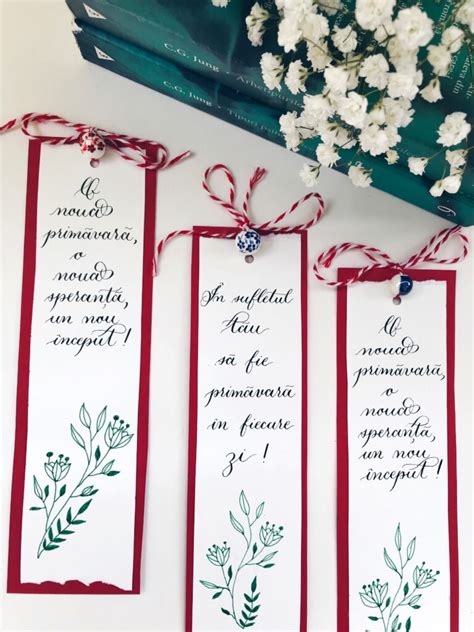 C.G. Jung
C.G. Jung • Tipuri
O
nouă
primăvară,
o
nouă
speranță,
un nou
început!
În sufletul
tău
să fie
primăvară
in fiecare
zi!
O
nouă
primăvară,
o
nouă
speranță,
un nou
început!